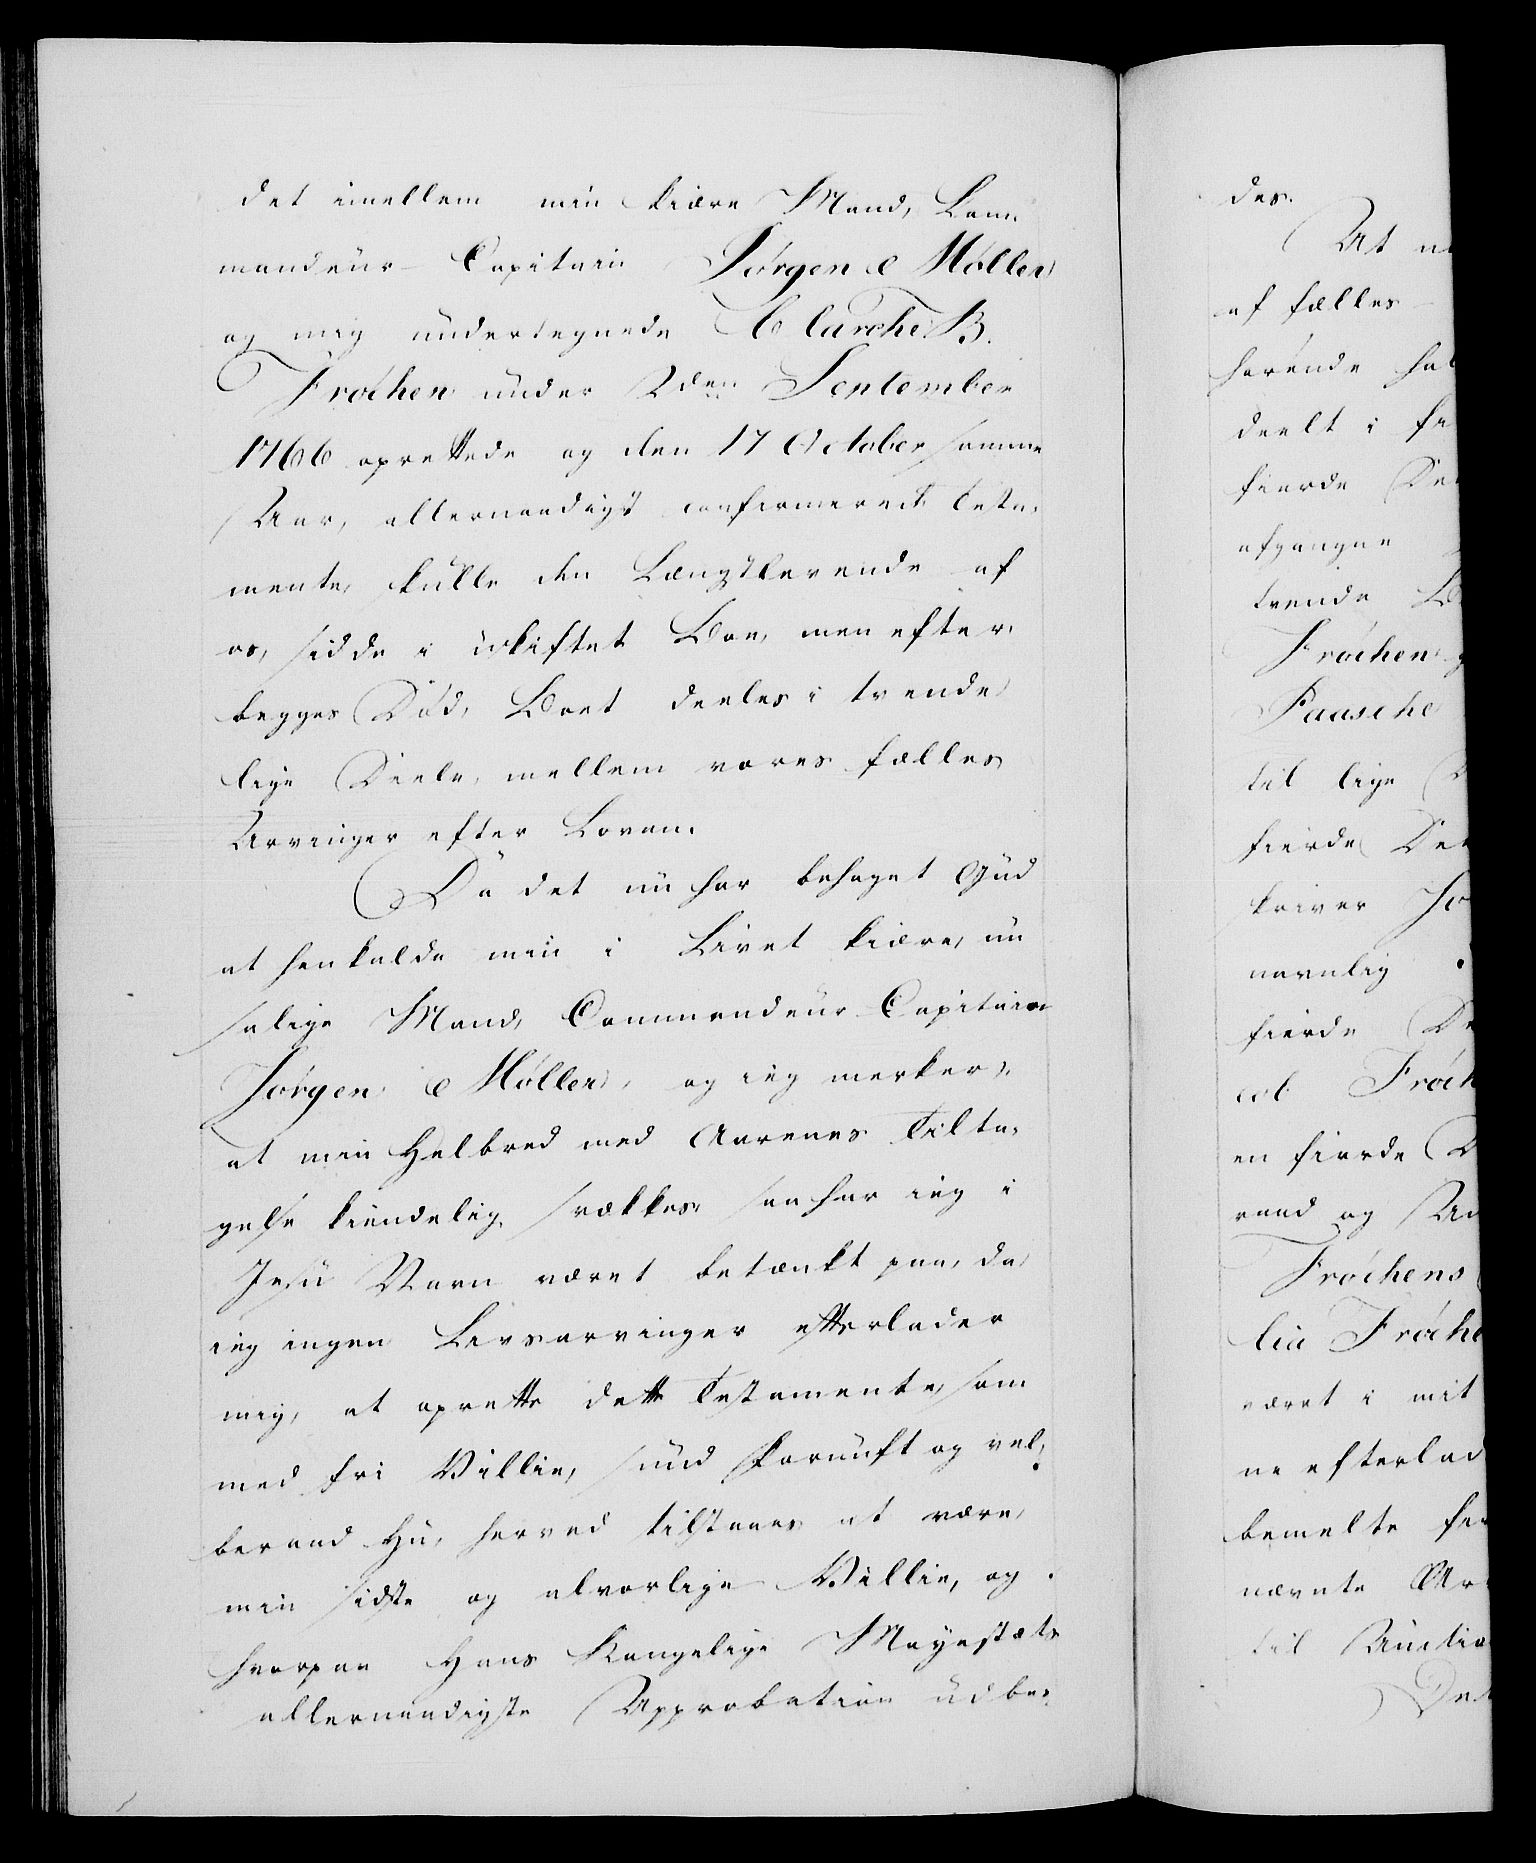 det imellem min kiære Mand, Com-
mandeur-Capitain Jørgen Møller
og mig undertegnede Clarche B.
Frøchen under 2den September
1766 oprettede og den 17 October samme
Aar, allernaadigst confirmerede Testa-
mente, skulle den Længstlevende af
os, sidde i uskiftet Boe, men efter
begges Død, Boet deeles i tvende
lige Deele, mellem vores fælles
Arvinger efter Loven.
Da det nu har behaget Gud
at henkalde min i Livet kiære, nu
salige Mand, Commandeur-Capitain
Jørgen Møller, og ieg merker,
at min Helbred med Aarenes Tilta-
gelse kiendelig svækkes, saa har ieg i
Jesu Navn været betænkt paa, da
ieg ingen Livsarvinger efterlader
mig, at oprette dette Testamente, som
med fri Villie, sund Fornuft og vel-
beraad Hu, herved tilstaaes at være
min sidste og alvorlige Villie, og
hvorpaa Hans Kongelige Mayestæts
allernaadigste Approbation udbe-
des.
At
af fælles
hørende
deelt i
fierde
afgangne
tvende
Frøchen
Paasche
til lige
fierde
skriver
navnlig
fierde
Frøch
en fierde
raad og
Frøchens
lia Frøche
været i mit
ne efterlad
bemelte
nævnte
til Auctio